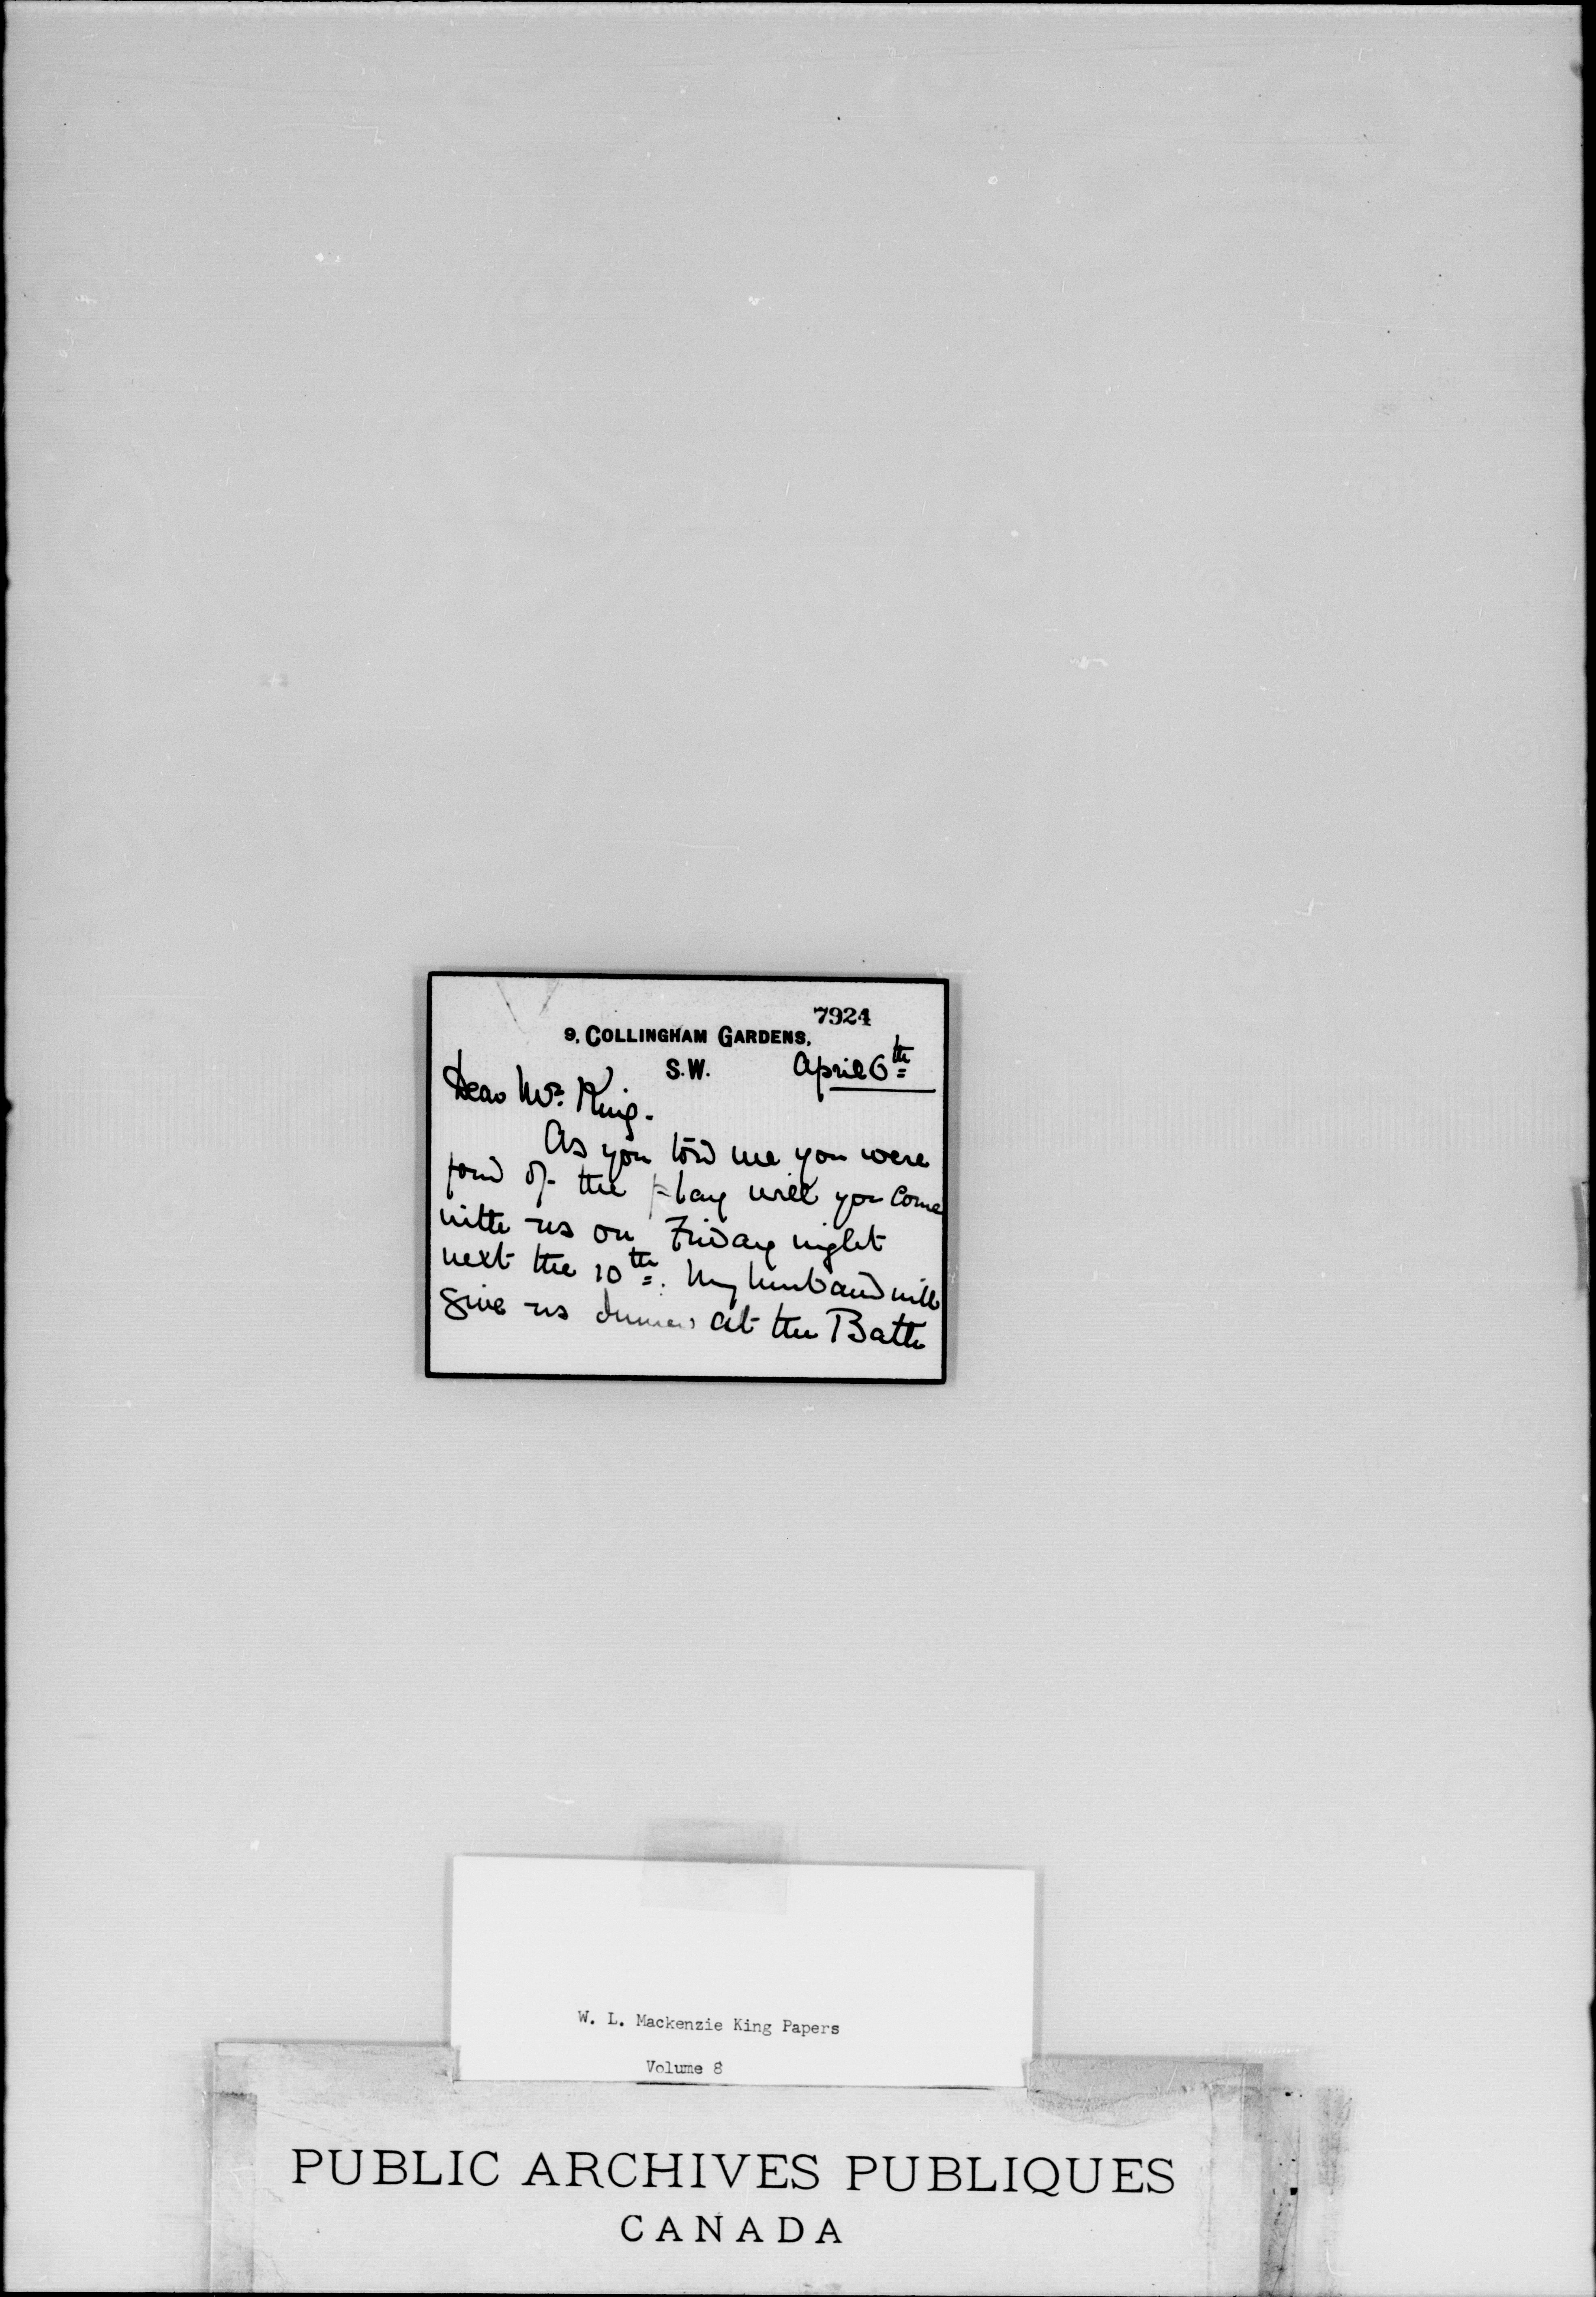 7924
9, COLLINGHAM GARDENS,
S.W. April 6th
Dear Mr. King.
As you told me you were
fond of the play will you come
with us on Friday night
next the 10th. My husband will
give us dinner at the Bath
W. L. Mackenzie King Papers
Volume 8
PUBLIC ARCHIVES PUBLIQUES
CANADA